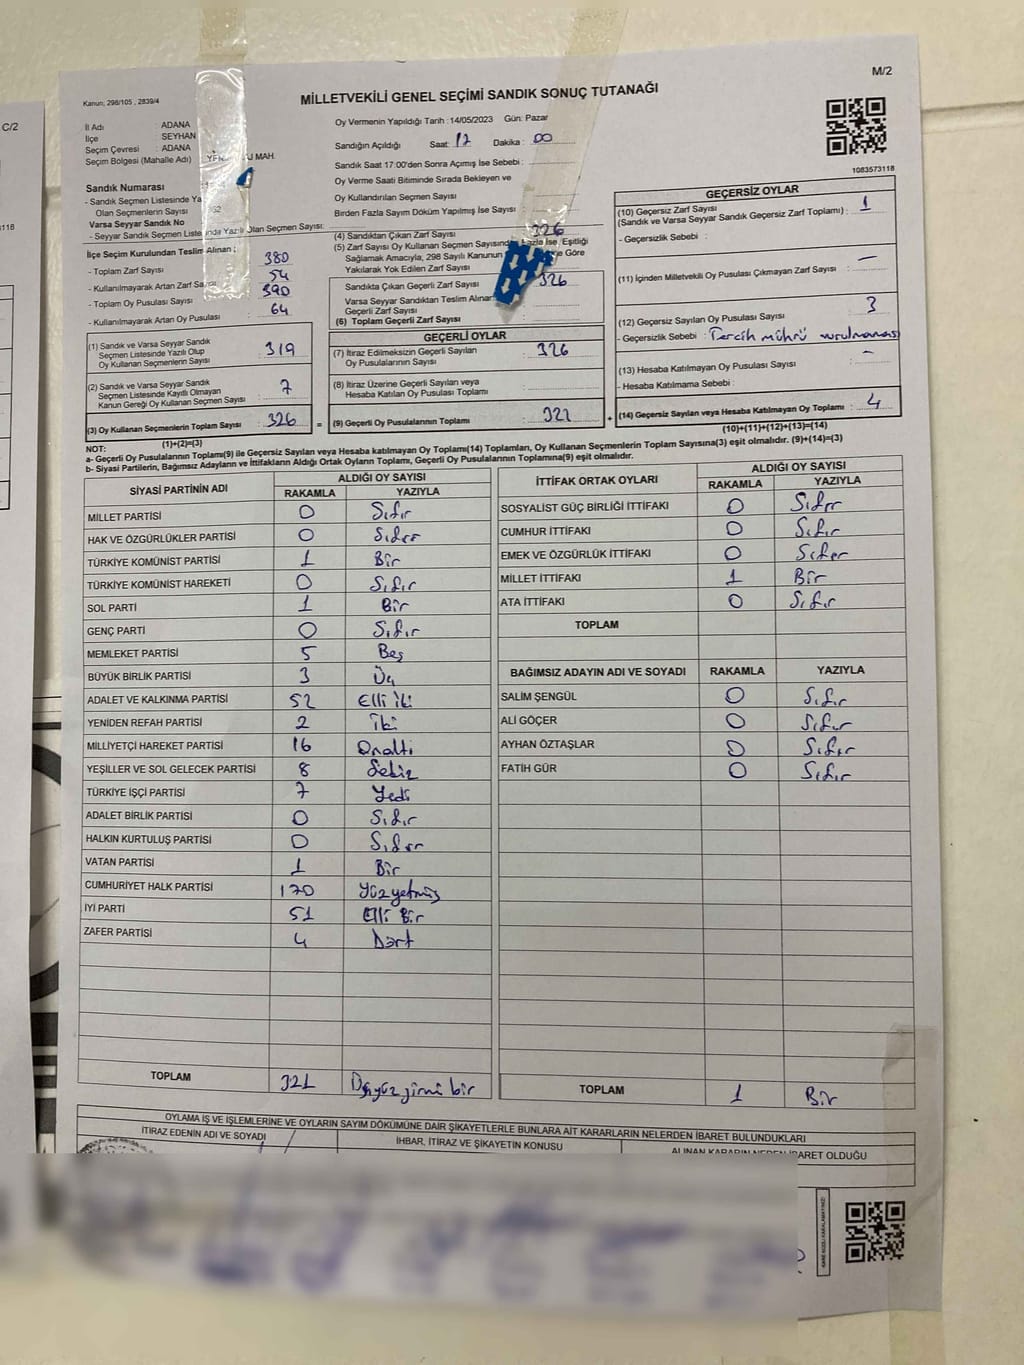 C/2
M/2
Kanun; 298/105 , 2839/4
MİLLETVEKİLİ GENEL SEÇİMİ SANDIK SONUÇ TUTANAĞI
İl Adı : ADANA
İlçe : SEYHAN
Seçim Çevresi : ADANA
Seçim Bölgesi (Mahalle Adı) MAH.
Sandık Numarası
- Sandık Seçmen Listesinde
Olan Seçmenlerin Sayısı
Varsa Seyyar Sandık No
- Seyyar Sandık Seçmen Listesinde Yazılı Olan Seçmen Sayısı:
Oy Vermenin Yapıldığı Tarih :14/05/2023 Gün: Pazar
Sandığın Açıldığı Saat: 17 Dakika : 00
Sandık Saat 17:00'den Sonra Açımış İse Sebebi :
Oy Verme Saati Bitiminde Sırada Bekleyen ve
Oy Kullandırılan Seçmen Sayısı :
Birden Fazla Sayım Döküm Yapılmış İse Sayısı :
1083573118
İlçe Seçim Kurulundan Teslim Alınan ;
- Toplam Zarf Sayısı : 380
- Kullanılmayarak Artan Zarf Sayısı 54
- Toplam Oy Pusulası Sayısı : 390
- Kullanılmayarak Artan Oy Pusulası : 64
(1) Sandık ve Varsa Seyyar Sandık
Seçmen Listesinde Yazılı Olup
Oy Kullanan Seçmenlerin Sayısı : 319
(2) Sandık ve Varsa Seyyar Sandık
Seçmen Listesinde Kayıtlı Olmayan
Kanun Gereği Oy Kullanan Seçmen Sayısı : 7
(3) Oy Kullanan Seçmenlerin Toplam Sayısı : 326
(1)+(2)=(3)
(4) Sandıktan Çıkan Zarf Sayısı : 326
(5) Zarf Sayısı Oy Kullanan Seçmen Sayısından Fazla İse, Eşitliği
Sağlamak Amacıyla, 298 Sayılı Kanunun Göre
Yakılarak Yok Edilen Zarf Sayısı
Sandıkta Çıkan Geçerli Zarf Sayısı : 326
Varsa Seyyar Sandıktan Teslim Alınan
Geçerli Zarf Sayısı
(6) Toplam Geçerli Zarf Sayısı :
GEÇERLİ OYLAR
(7) İtiraz Edilmeksizin Geçerli Sayılan
Oy Pusulalarının Sayısı : 326
(8) İtiraz Üzerine Geçerli Sayılan veya
Hesaba Katılan Oy Pusulası Toplamı :
= (9) Geçerli Oy Pusulalarının Toplamı : 322
GEÇERSİZ OYLAR
(10) Geçersiz Zarf Sayısı
(Sandık ve Varsa Seyyar Sandık Geçersiz Zarf Toplamı) : 1
- Geçersizlik Sebebi :
(11) İçinden Milletvekili Oy Pusulası Çıkmayan Zarf Sayısı : —
(12) Geçersiz Sayılan Oy Pusulası Sayısı : 3
- Geçersizlik Sebebi : Tercih mührü vurulmaması
(13) Hesaba Katılmayan Oy Pusulası Sayısı : —
- Hesaba Katılmama Sebebi :
+ (14) Geçersiz Sayılan veya Hesaba Katılmayan Oy Toplamı : 4
(10)+(11)+(12)+(13)=(14)
NOT:
a- Geçerli Oy Pusulalarının Toplamı(9) ile Geçersiz Sayılan veya Hesaba Katılmayan Oy Toplamı(14) Toplamları, Oy Kullanan Seçmenlerin Toplam Sayısına(3) eşit olmalıdır. (9)+(14)=(3)
b- Siyasi Partilerin, Bağımsız Adayların ve İttifakların Aldığı Ortak Oyların Toplamı, Geçerli Oy Pusulalarının Toplamına(9) eşit olmalıdır.
SİYASİ PARTİNİN ADI ALDIĞI OY SAYISI
RAKAMLA YAZIYLA
MİLLET PARTİSİ 0 Sıfır
HAK VE ÖZGÜRLÜKLER PARTİSİ 0 Sıfır
TÜRKİYE KOMÜNİST PARTİSİ 1 Bir
TÜRKİYE KOMÜNİST HAREKETİ 0 Sıfır
SOL PARTİ 1 Bir
GENÇ PARTİ 0 Sıfır
MEMLEKET PARTİSİ 5 Beş
BÜYÜK BİRLİK PARTİSİ 3 Üç
ADALET VE KALKINMA PARTİSİ 52 Elli iki
YENİDEN REFAH PARTİSİ 2 iki
MİLLİYETÇİ HAREKET PARTİSİ 16 Onaltı
YEŞİLLER VE SOL GELECEK PARTİSİ 8 Sekiz
TÜRKİYE İŞÇİ PARTİSİ 7 Yedi
ADALET BİRLİK PARTİSİ 0 Sıfır
HALKIN KURTULUŞ PARTİSİ 0 Sıfır
VATAN PARTİSİ 1 Bir
CUMHURİYET HALK PARTİSİ 170 Yüzyetmiş
İYİ PARTİ 51 Elli Bir
ZAFER PARTİSİ 4 Dört
TOPLAM 321 Üçyüzyirmi bir
İTTİFAK ORTAK OYLARI ALDIĞI OY SAYISI
RAKAMLA YAZIYLA
SOSYALİST GÜÇ BİRLİĞİ İTTİFAKI 0 Sıfır
CUMHUR İTTİFAKI 0 Sıfır
EMEK VE ÖZGÜRLÜK İTTİFAKI 0 Sıfır
MİLLET İTTİFAKI 1 Bir
ATA İTTİFAKI 0 Sıfır
TOPLAM
BAĞIMSIZ ADAYIN ADI VE SOYADI RAKAMLA YAZIYLA
SALİM ŞENGÜL 0 Sıfır
ALİ GÖÇER 0 Sıfır
AYHAN ÖZTAŞLAR 0 Sıfır
FATİH GÜR 0 Sıfır
TOPLAM 1 Bir
OYLAMA İŞ VE İŞLEMLERİNE VE OYLARIN SAYIM DÖKÜMÜNE DAİR ŞİKAYETLERLE BUNLARA AİT KARARLARIN NELERDEN İBARET BULUNDUKLARI
İTİRAZ EDENİN ADI VE SOYADI İHBAR, İTİRAZ VE ŞİKAYETİN KONUSU ALINAN KARARIN NEDEN İBARET OLDUĞU